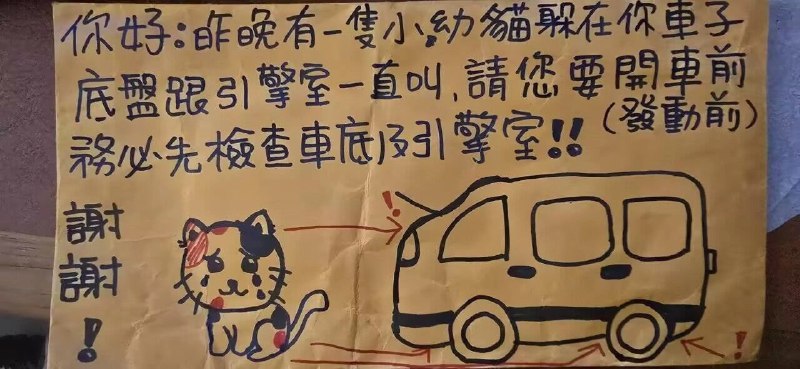 你好:昨晚有一隻小幼貓躲在你車子
底盤跟引擎室一直叫,請您要開車前
(發動前)
務必先檢查車底及引擎室!!
謝
謝
!
!
!